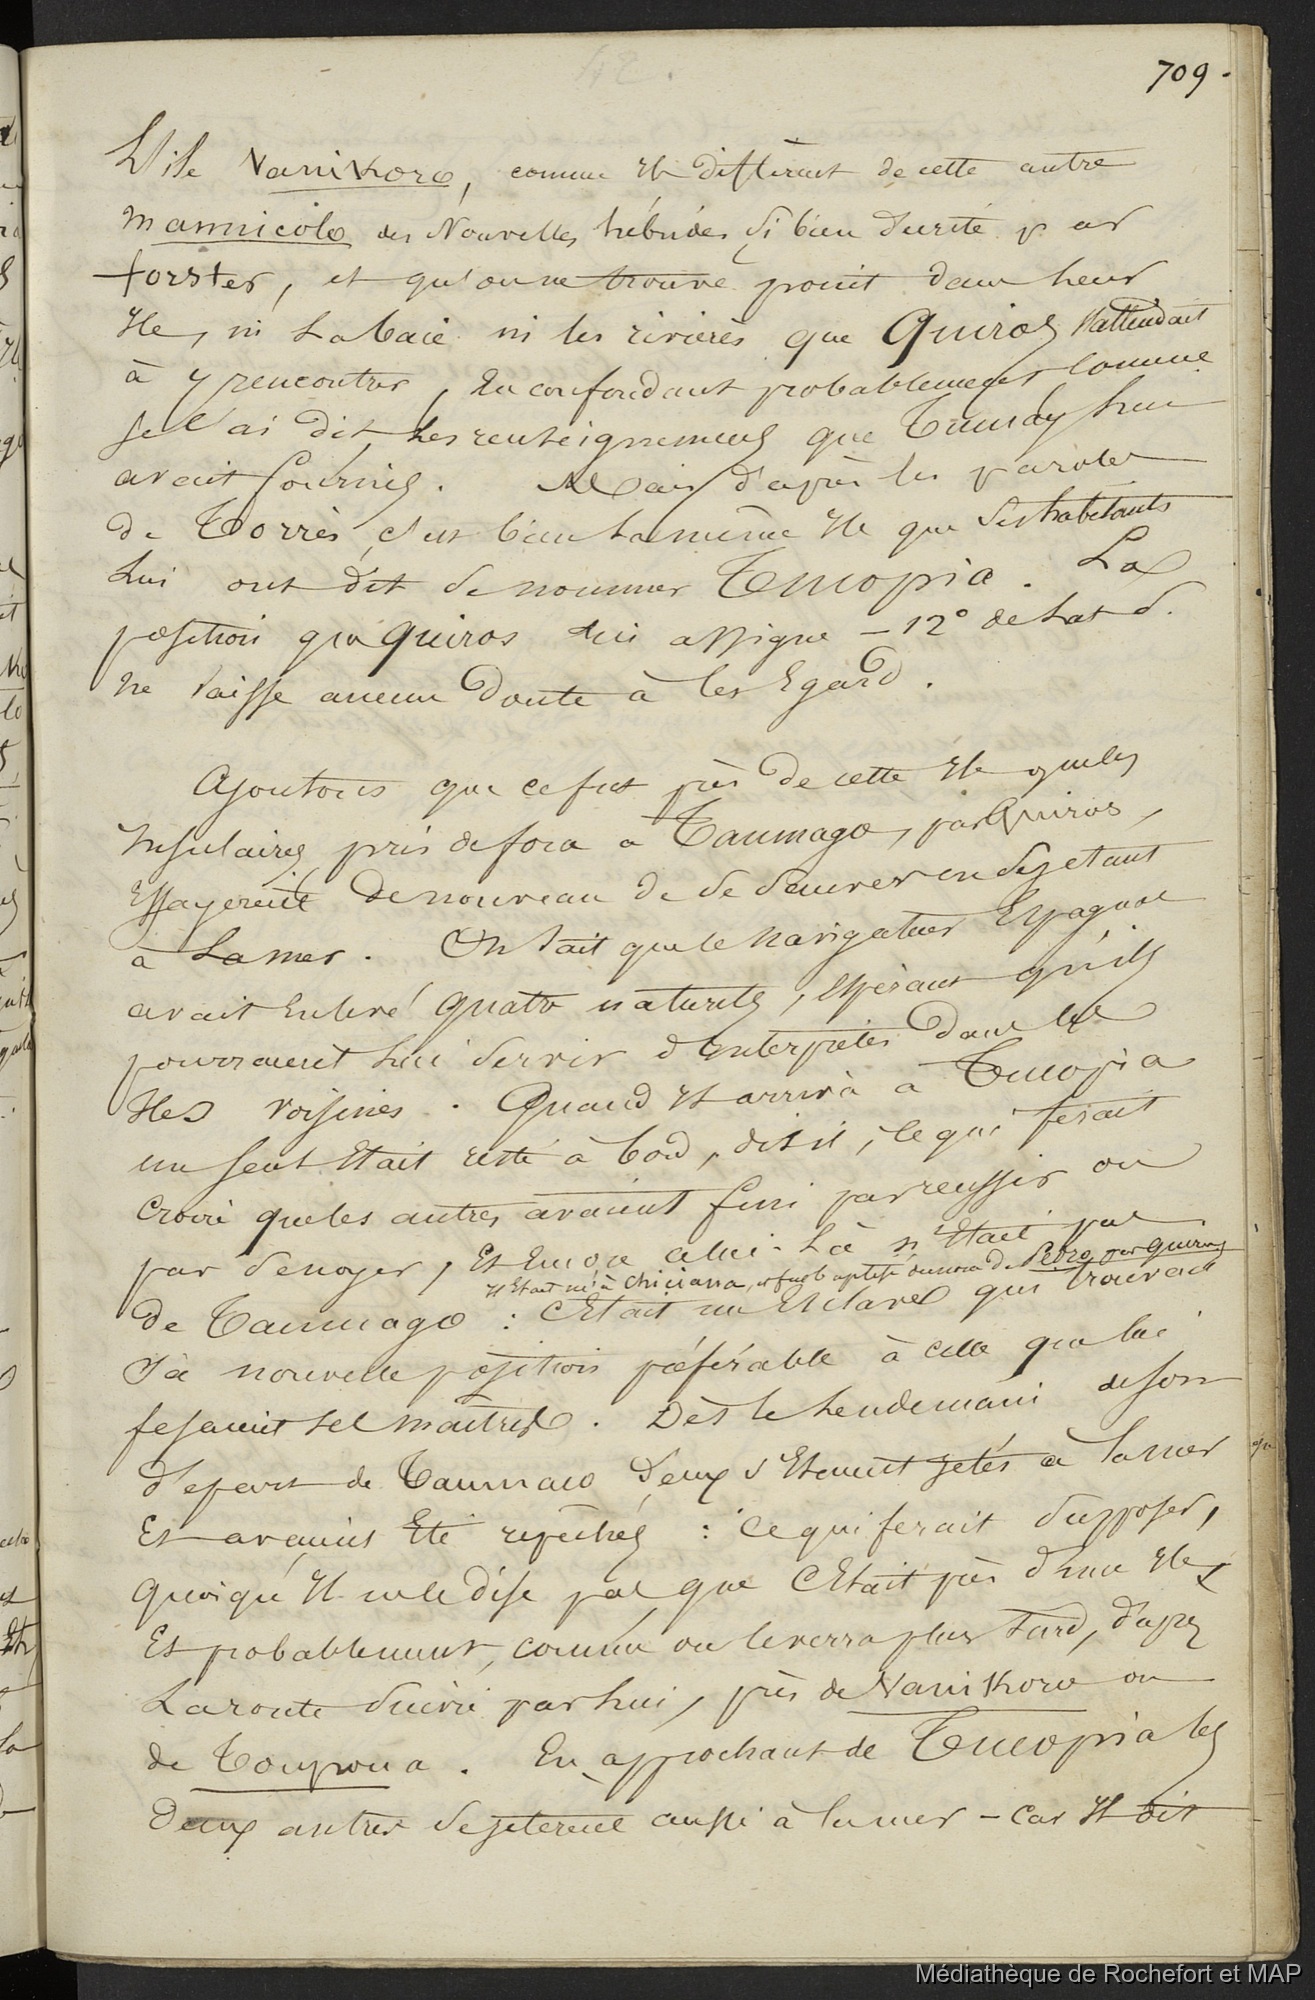 709.
L'ile Vanikoro, comme Ile différent de cette autre
Mannicolo des Nouvelles hébrides si bien decrite par
forster, et qu'on ne trouve point dans leur
Ile, ni la baie ni les rivières que Quiros s'attendait
à y rencontrer, en confondant probablement comme
je l'ai dit, les renseignemens que Tumay lui
avait fournis. Mais d'après les paroles
de Torrès, c'est bien la même Ile que ses habitants
lui ont dit se nommer Tucopia. La
position que Quiros lui assigne – 12° de Lat S.
ne laisse aucun doute à cet Egard.
Ajoutons que ce fut près de cette Ile que les
Insulaires pris de force a Taumago, par Quiros,
Essayerent de nouveau de se sauver en se jetant
à la mer. On sait que le navigateur Espagnol
avait enlevé quatre naturels, espérant qu'ils
pourraient lui servir d'interprètes dans les
Iles voisines. Quand Il arriva à Tucopia
un seul Etait resté à bord, dit il, ce qui ferait
croire que les autres avaient fini par reussir ou
par se noyer, Et Encore celui-là n'Etait pas
Il Etait né à Chiciana, et fut baptisé du nom de Pedro par Quiros
de Taumago : C'Etait un Esclave qui trouvait
sa nouvelle position préférable à celle que lui
fesaient ses maitres. Dès le lendemain de son
départ de Taumaco deux s'Etaient jetés à la mer
Et avaient Eté repêchés : ce qui ferait supposer,
quoiqu'Il ne le dise pas que c'Etait près d'une Ile,
Et probablement, comme on le verra plus tard, d'après
La route suivie par lui, près de Vanikoro ou
de Toupoua. En approchant de Tucopia les
Deux autres se jeterent aussi à la mer – car Il dit
Médiathèque de Rochefort et MAP